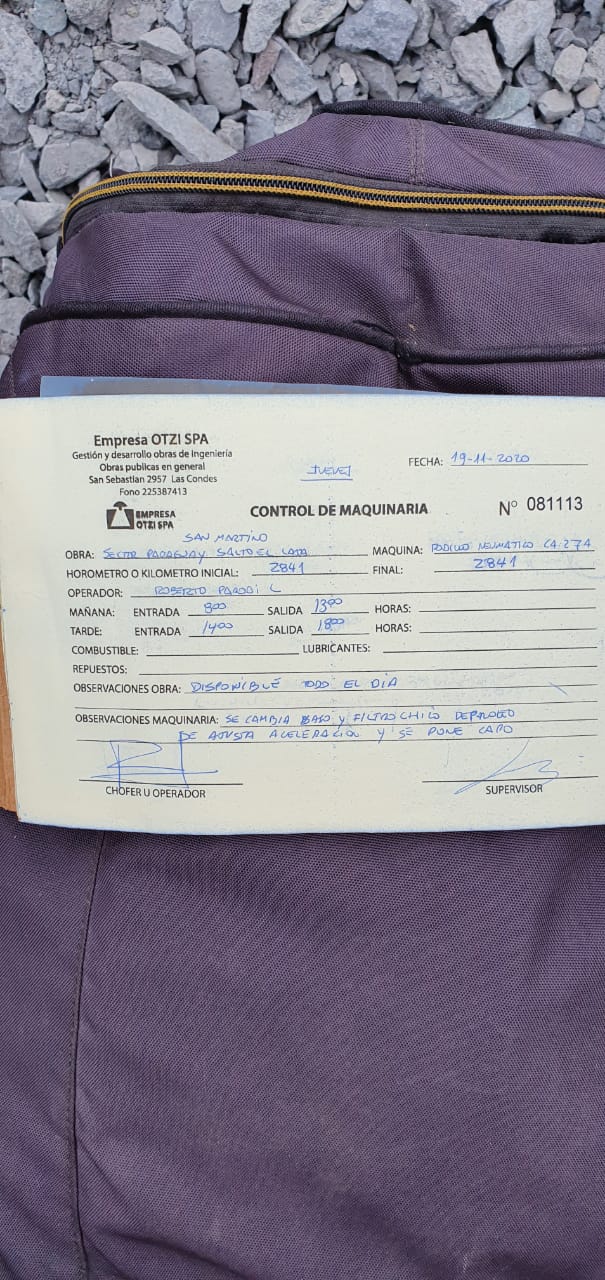 Empresa OTZI SPA
Gestión y desarrollo obras de Ingeniería
Obras publicas en general
San Sebastian 2957 Las Condes
Fono 225387413
JUEVES
FECHA: 19-11-2020
EMPRESA
OTZI SPA
CONTROL DE MAQUINARIA
N° 081113
SAN MARTINO
OBRA: SECTOR PARAGUAY SALTO EL MAQUINA: RODILLO NEUMATICO CA-27A
HOROMETRO O KILOMETRO INICIAL: 2841 FINAL: 2841
OPERADOR: ROBERTO PARODI C
MAÑANA: ENTRADA 8:00 SALIDA 13:00 HORAS:
TARDE: ENTRADA 14:00 SALIDA 18:00 HORAS:
COMBUSTIBLE: LUBRICANTES:
REPUESTOS:
OBSERVACIONES OBRA: DISPONIBLE TODO EL DIA
OBSERVACIONES MAQUINARIA: SE CAMBIA Y FILTRO
ACELERACION Y SE PONE CAPO
CHOFER U OPERADOR
SUPERVISOR